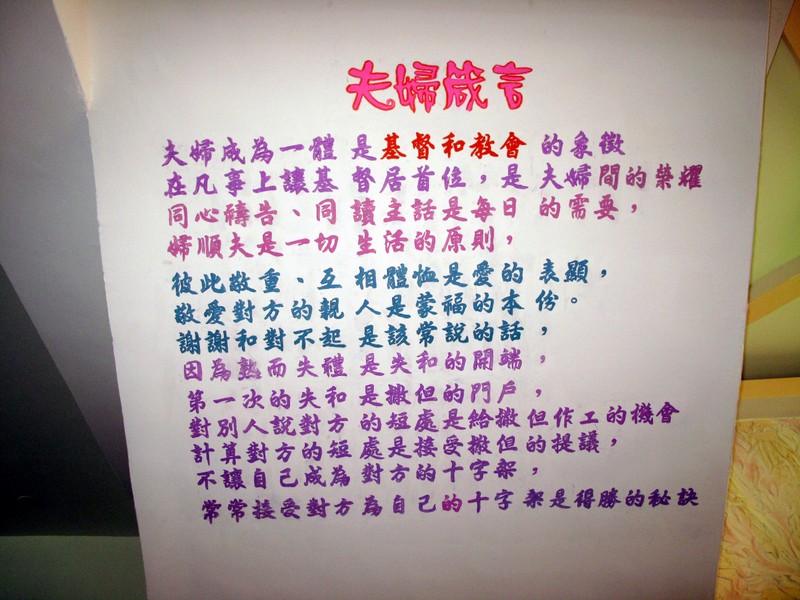 夫婦箴言
夫婦成為一體 是基督和教會 的象徵
在凡事上讓基 督居首位，是 夫婦間的榮耀
同心禱告、同 讀主話是每日 的需要，
婦順夫是一切 生活的原則，
彼此敬重、互 相體恤是愛的 表顯，
敬愛對方的親 人是蒙福的本 份。
謝謝和對不起 是該常說的話，
因為熟而失禮 是失和的開端，
第一次的失和 是撒但的門戶，
對別人說對方 的短處是給撒但作工的機會
計算對方的短 處是接受撒但的提議，
不讓自己成為 對方的十字架，
常常接受對方為自己的十字 架是得勝的秘訣